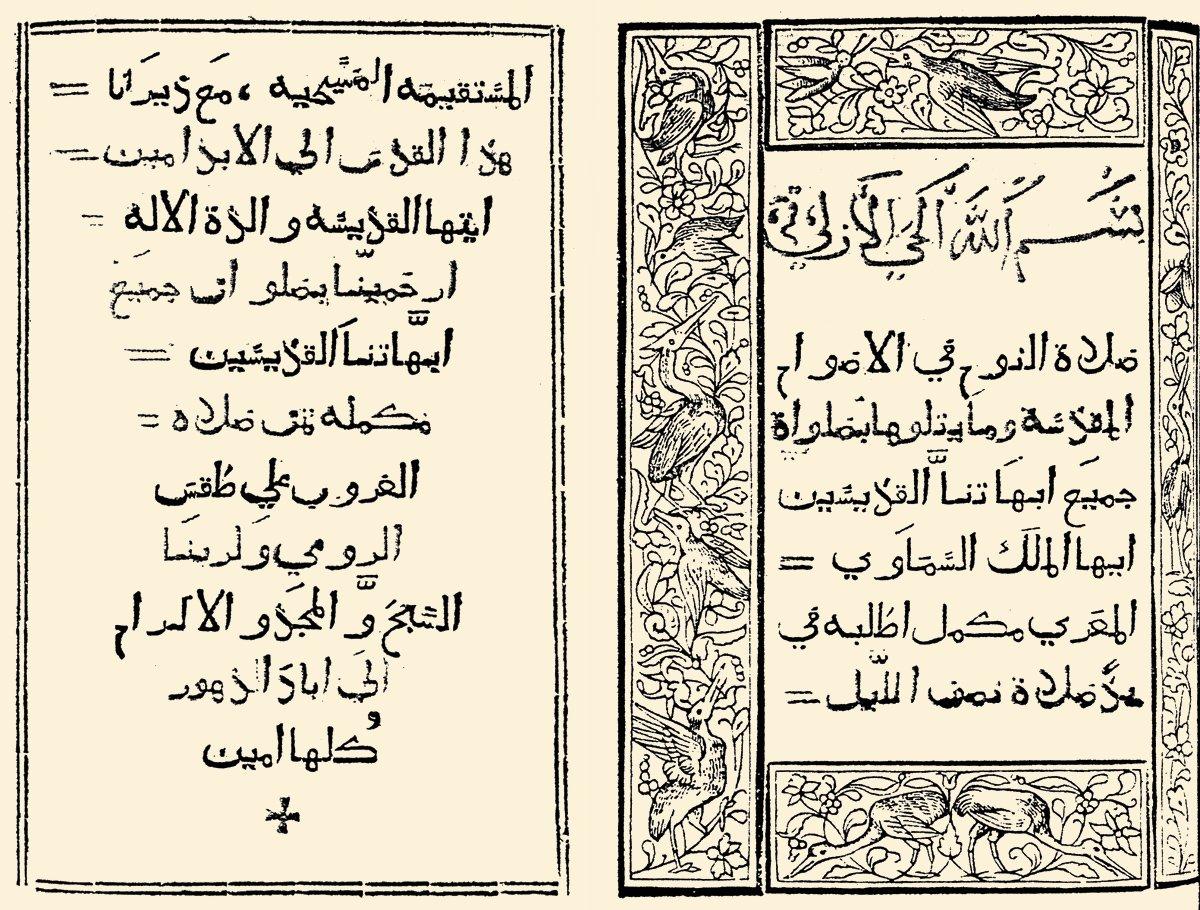 بسم الله الحي الازلي
صلاة النوم في
المقدسة وما يتلوها بصلواة
جميع ابهاتنا القديسين
ايها الملك السماوي =
المعزي مكمل اطلبه في
صلاة نصف الليل =
المستقيمه المسيحيه ، مع =
هذا القدس الي الابد امين =
ايتها القديسه والدة الاله =
ارحمينا بصلو اتي جميع
ابهاتنا القديسين =
مكمله تمت صلاة =
الغروب علي طقس
الرومي ولربنا
السبح و المجد و الاكرام
الي اباد الدهور
كلها امين